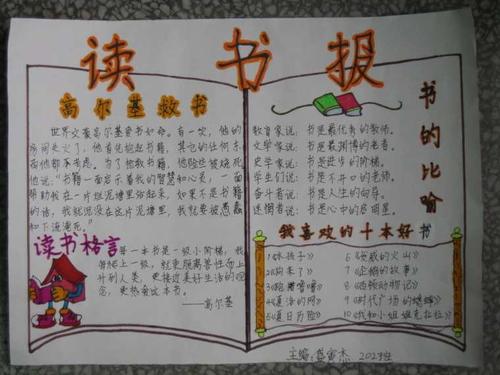 读书报
高尔基救书
世界文豪高尔基爱书如命。有一次，他的
房间失火了，他首先抱起书籍，其它的任何东
西他都不考虑。为了抢救书籍，他险些被烧死。
他说：“书籍一面启示着我的智慧和心灵，一面
帮助我在一片烂泥塘里站起来，如果不是书籍
的话，我就沉没在这片泥塘里，我就要被愚蠢
和下流淹死。”
读书格言
每一本书是一级小阶梯，我
每爬上一级，就更脱离兽性而上
升到人类，更接近美好生活的观
念，更热爱这本书。
——高尔基
书的比喻
教育家说：书是最优秀的教师。
文学家说：书是最渊博的老者。
史学家说：书是进步的阶梯。
学生们说：书是不开口的老师。
奋斗者说：书是人生的向导。
迷惘者说：书是心中的启明星。
我喜欢的十本好书
1《妹孩子》
2《狗来了》
3《跑猪噜噜》
4《夏洛的网》
5《夏日历险》
6《爸爸的火山》
7《企鹅的故事》
8《西顿动物记》
9《时代广场的蟋蟀》
10《我和小姐姐克拉拉》
主编：龚寅杰 202班